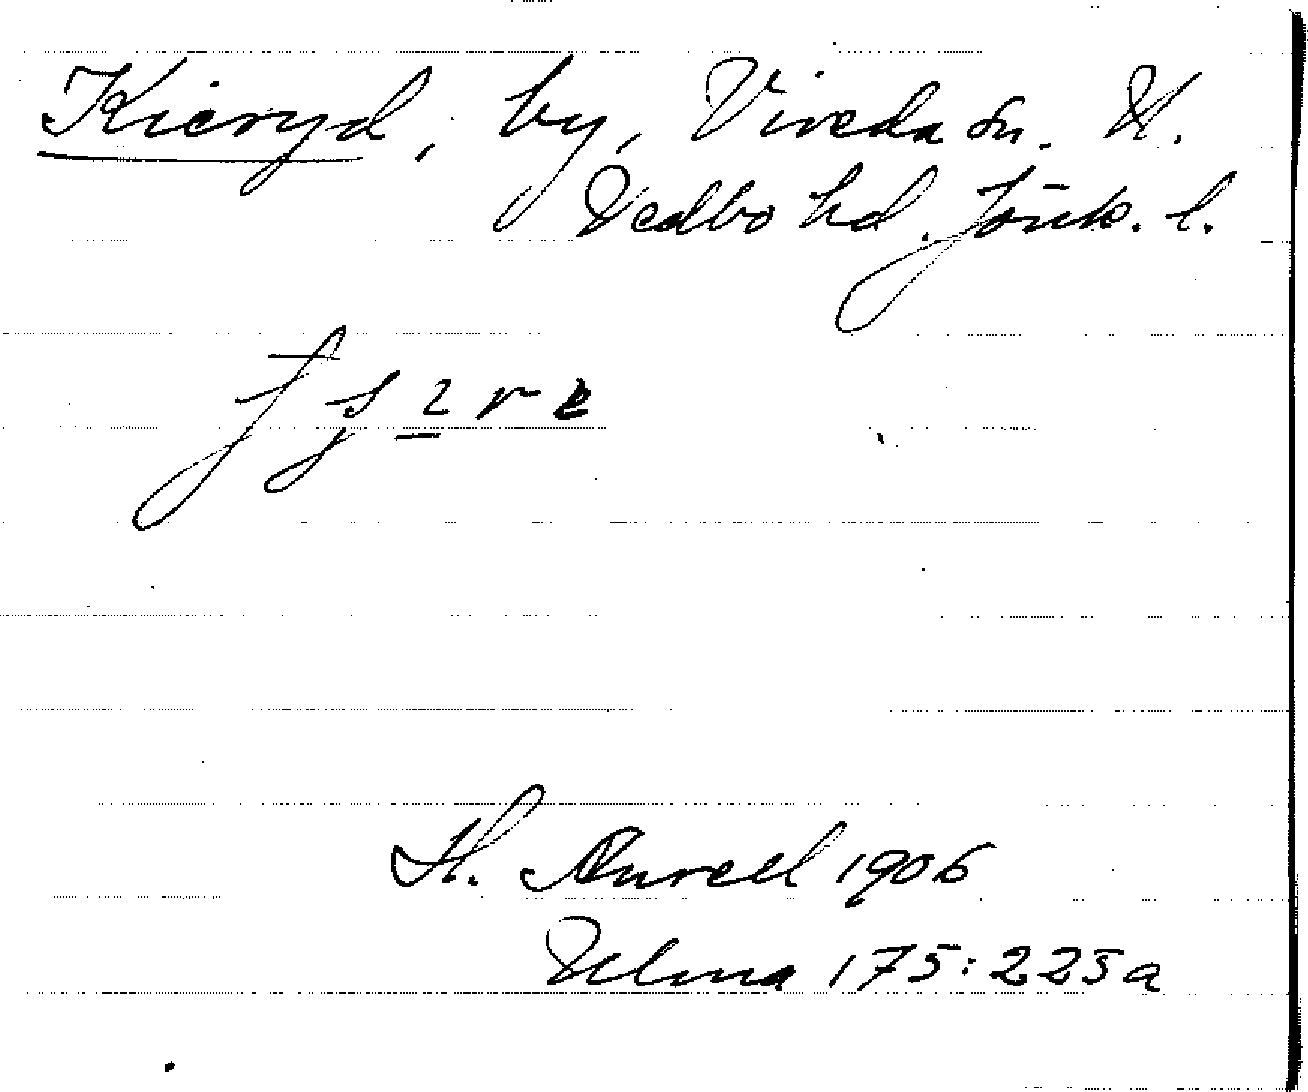 Kieryd, by, Vireda sn. N.
Vedbo hd. Jönk. l.
H. Aurell 1906
Ulma 175:225a